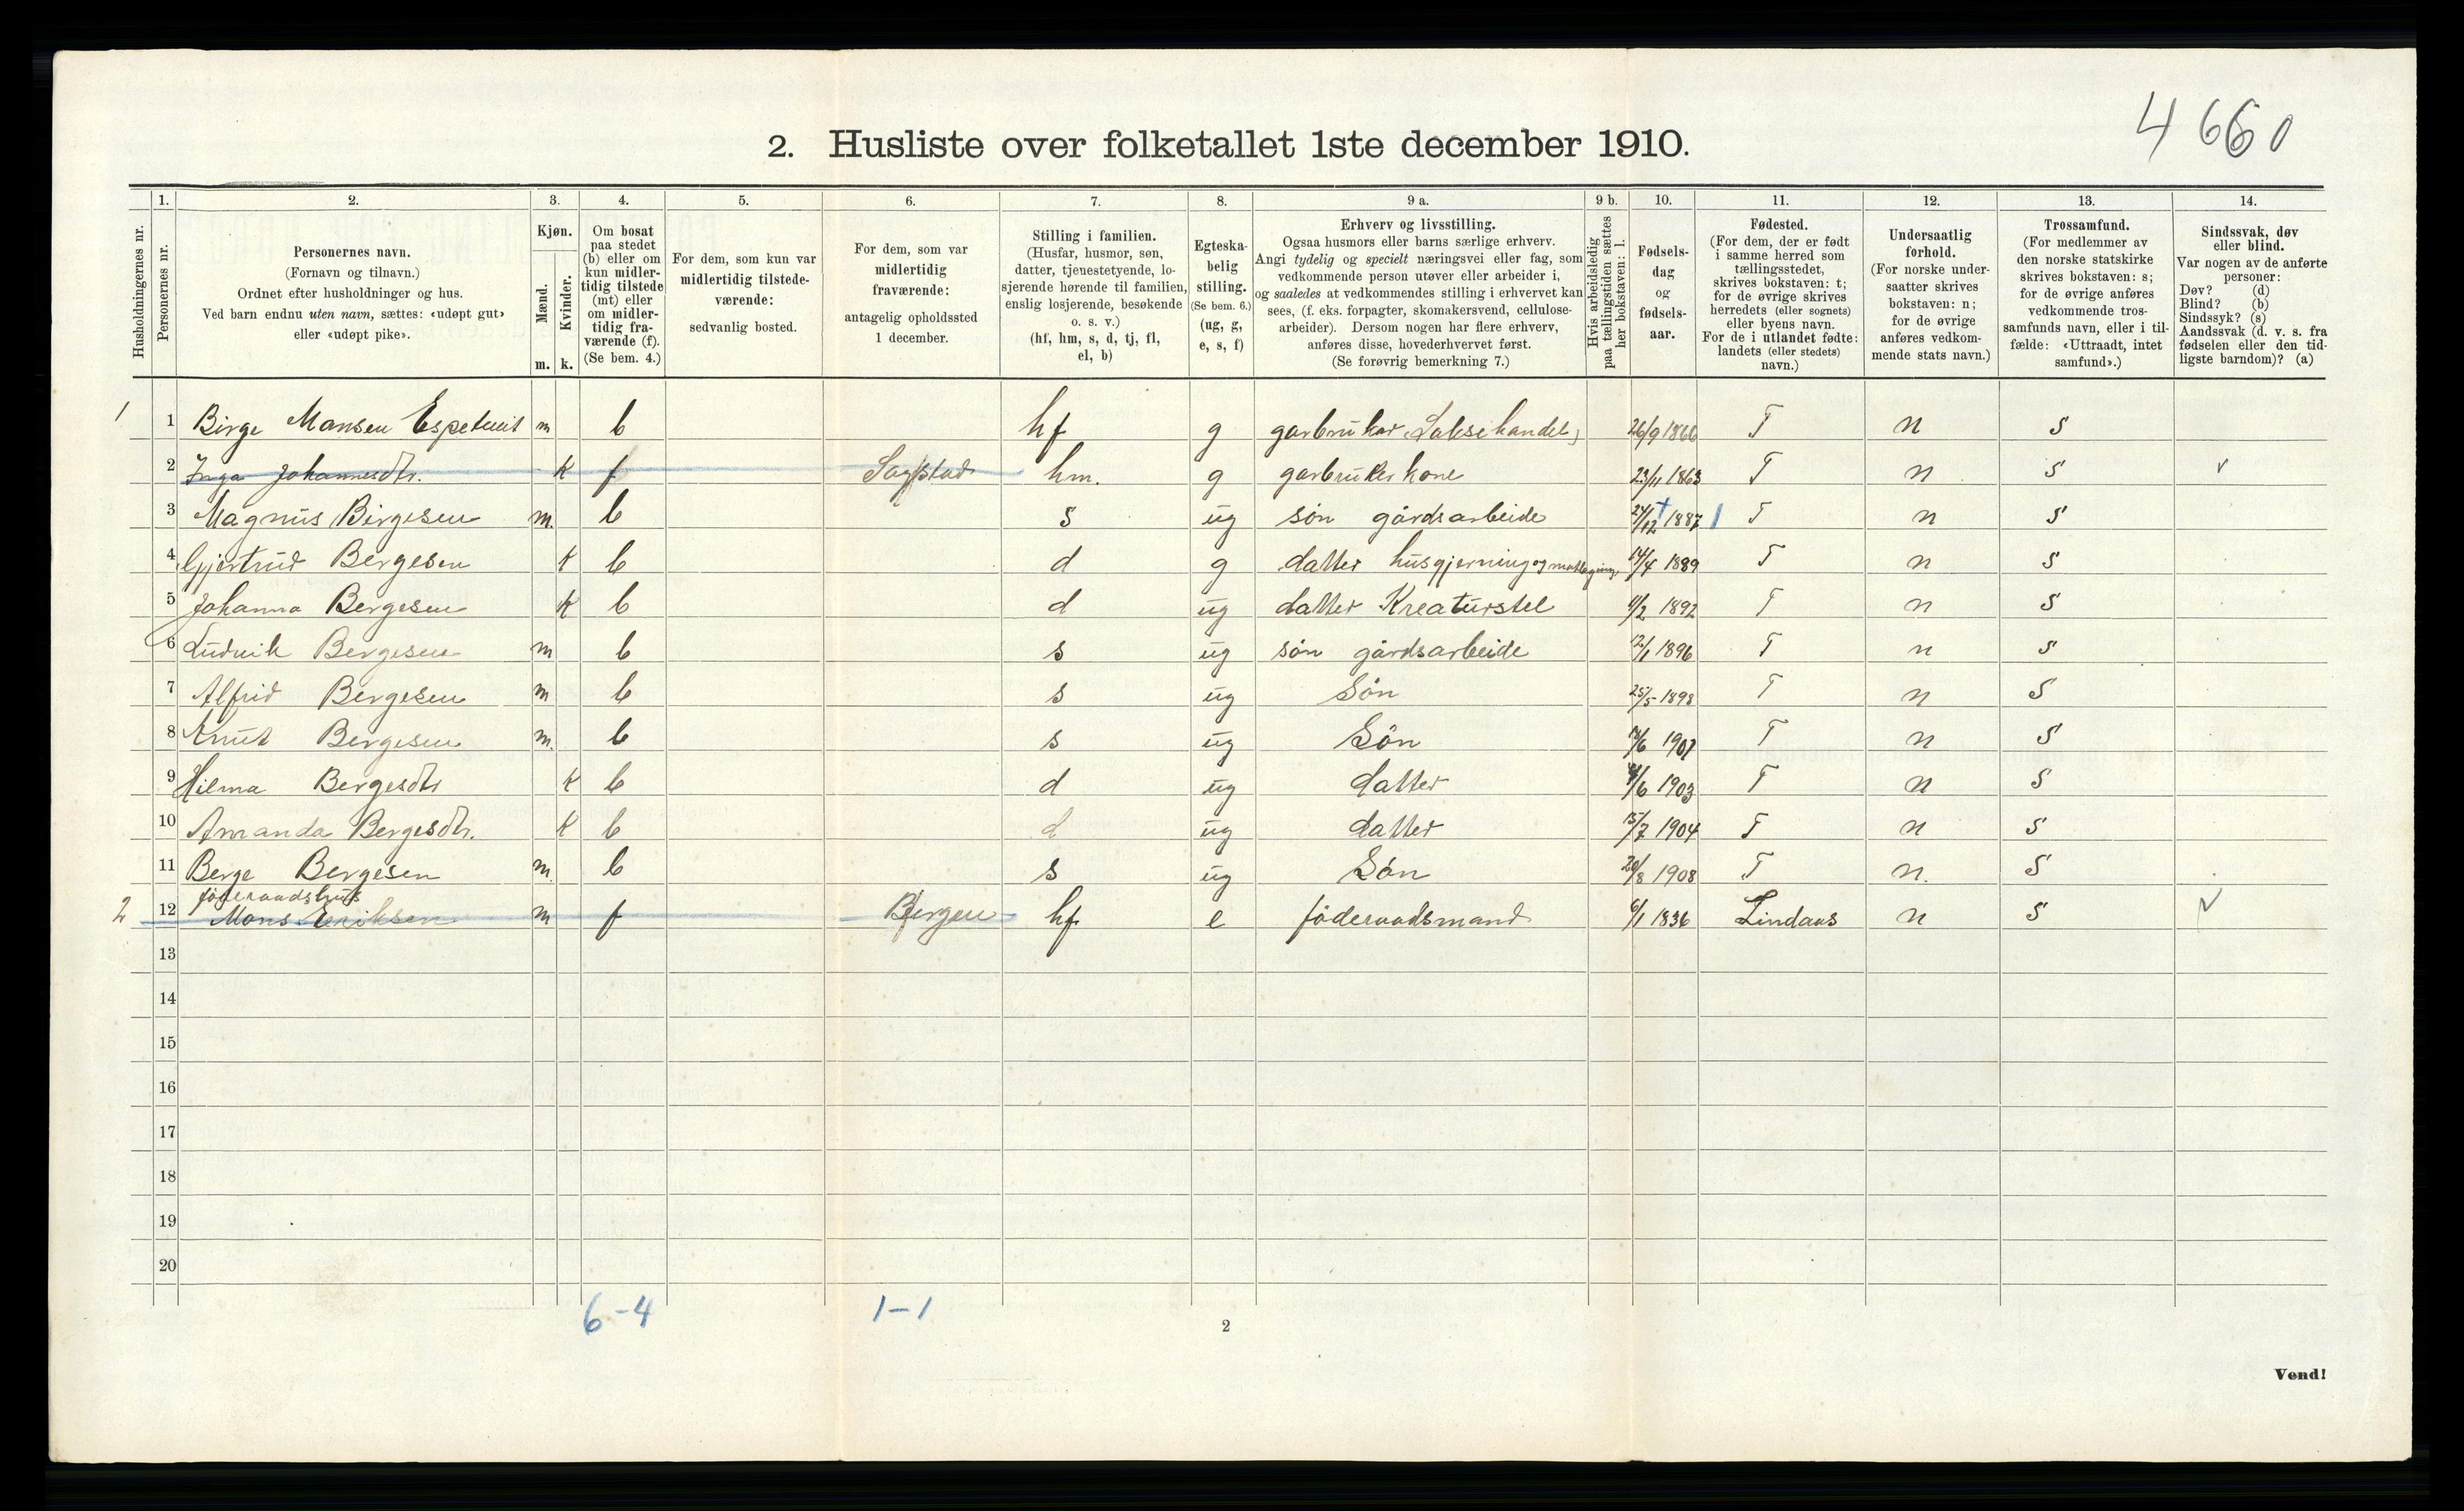 4660
2. Husliste over folketallet 1ste december 1910.
Husholdningernes nr.
1. Personernes nr.
2. Personernes navn.
(Fornavn og tilnavn.)
Ordnet efter husholdninger og hus.
Ved barn endnu uten navn, sættes: «udøpt gut»
eller «udøpt pike».
3. Kjøn.
Mænd. m.
Kvinder. k.
4. Om bosat
paa stedet
(b) eller om
kun midler-
tidig tilstede
(mt) eller
om midler-
tidig fra-
værende (f).
(Se bem. 4.)
5. For dem, som kun var
midlertidig tilstede-
værende:
sedvanlig bosted.
6. For dem, som var
midlertidig
fraværende:
antagelig opholdssted
1 december.
7. Stilling i familien.
(Husfar, husmor, søn,
datter, tjenestetyende, lo-
sjerende hørende til familien,
enslig losjerende, besøkende
o. s. v.)
(hf, hm, s, d, tj, fl,
el, b)
8. Egteska-
belig
stilling.
(Se bem. 6.)
(ug, g,
e, s, f)
9 a. Erhverv og livsstilling.
Ogsaa husmors eller barns særlige erhverv.
Angi tydelig og specielt næringsvei eller fag, som
vedkommende person utøver eller arbeider i,
og saaledes at vedkommendes stilling i erhvervet kan
sees, (f. eks. forpagter, skomakersvend, cellulose-
arbeider). Dersom nogen har flere erhverv,
anføres disse, hovederhvervet først.
(Se forøvrig bemerkning 7.)
9 b. Hvis arbeidsledig
paa tællingstiden sættes
her bokstaven: l.
10. Fødsels-
dag
og
fødsels-
aar.
11. Fødested.
(For dem, der er født
i samme herred som
tællingsstedet,
skrives bokstaven: t;
for de øvrige skrives
herredets (eller sognets)
eller byens navn.
For de i utlandet fødte:
landets (eller stedets)
navn.)
12. Undersaatlig
forhold.
(For norske under-
saatter skrives
bokstaven: n;
for de øvrige
anføres vedkom-
mende stats navn.)
13. Trossamfund.
(For medlemmer av
den norske statskirke
skrives bokstaven: s;
for de øvrige anføres
vedkommende tros-
samfunds navn, eller i til-
fælde: «Uttraadt, intet
samfund».)
14. Sindssvak, døv
eller blind.
Var nogen av de anførte
personer:
Døv? (d)
Blind? (b)
Sindssyk? (s)
Aandssvak (d. v. s. fra
fødselen eller den tid-
ligste barndom)? (a)
1 1 Birge Monsen m b hf g garbruker 26/9 1866 T n S
2 Inga Johannesdtr. K f Sagstad hm. g garbrukerkone 23/11 1863 T n S
3 Magnus Birgesen m. b s ug søn gårdsarbeide 24/12 1887 T n S
4 Gjertrud Bergesen K b d g datter husgjerning og 14/4 1889 T n S
5 Johanna Bergesen K b d ug datter Kreaturstel 4/2 1892 T n S
6 Ludvik Bergesen m b s ug søn gårdsarbeide 12/1 1896 T n S
7 Alfrid Bergesen m b s ug Søn 25/5 1898 T n S
8 Knut Bergesen m. b s ug Søn 14/6 1901 T n S
9 Hilma Bergesdtr K b d ug datter /6 1903 T n S
10 Amanda Bergesdtr. K b d ug datter 15/7 1904 T n S
11 Berge Bergesen m. b s ug Søn 20/8 1908 T n. S
føderaadshus
2 12 Mons Eriksen m f Bergen hf e føderaadsmand 6/1 1836 Lindaas n S
13
14
15
16
17
18
19
20
6-4 1-1
2
Vend!